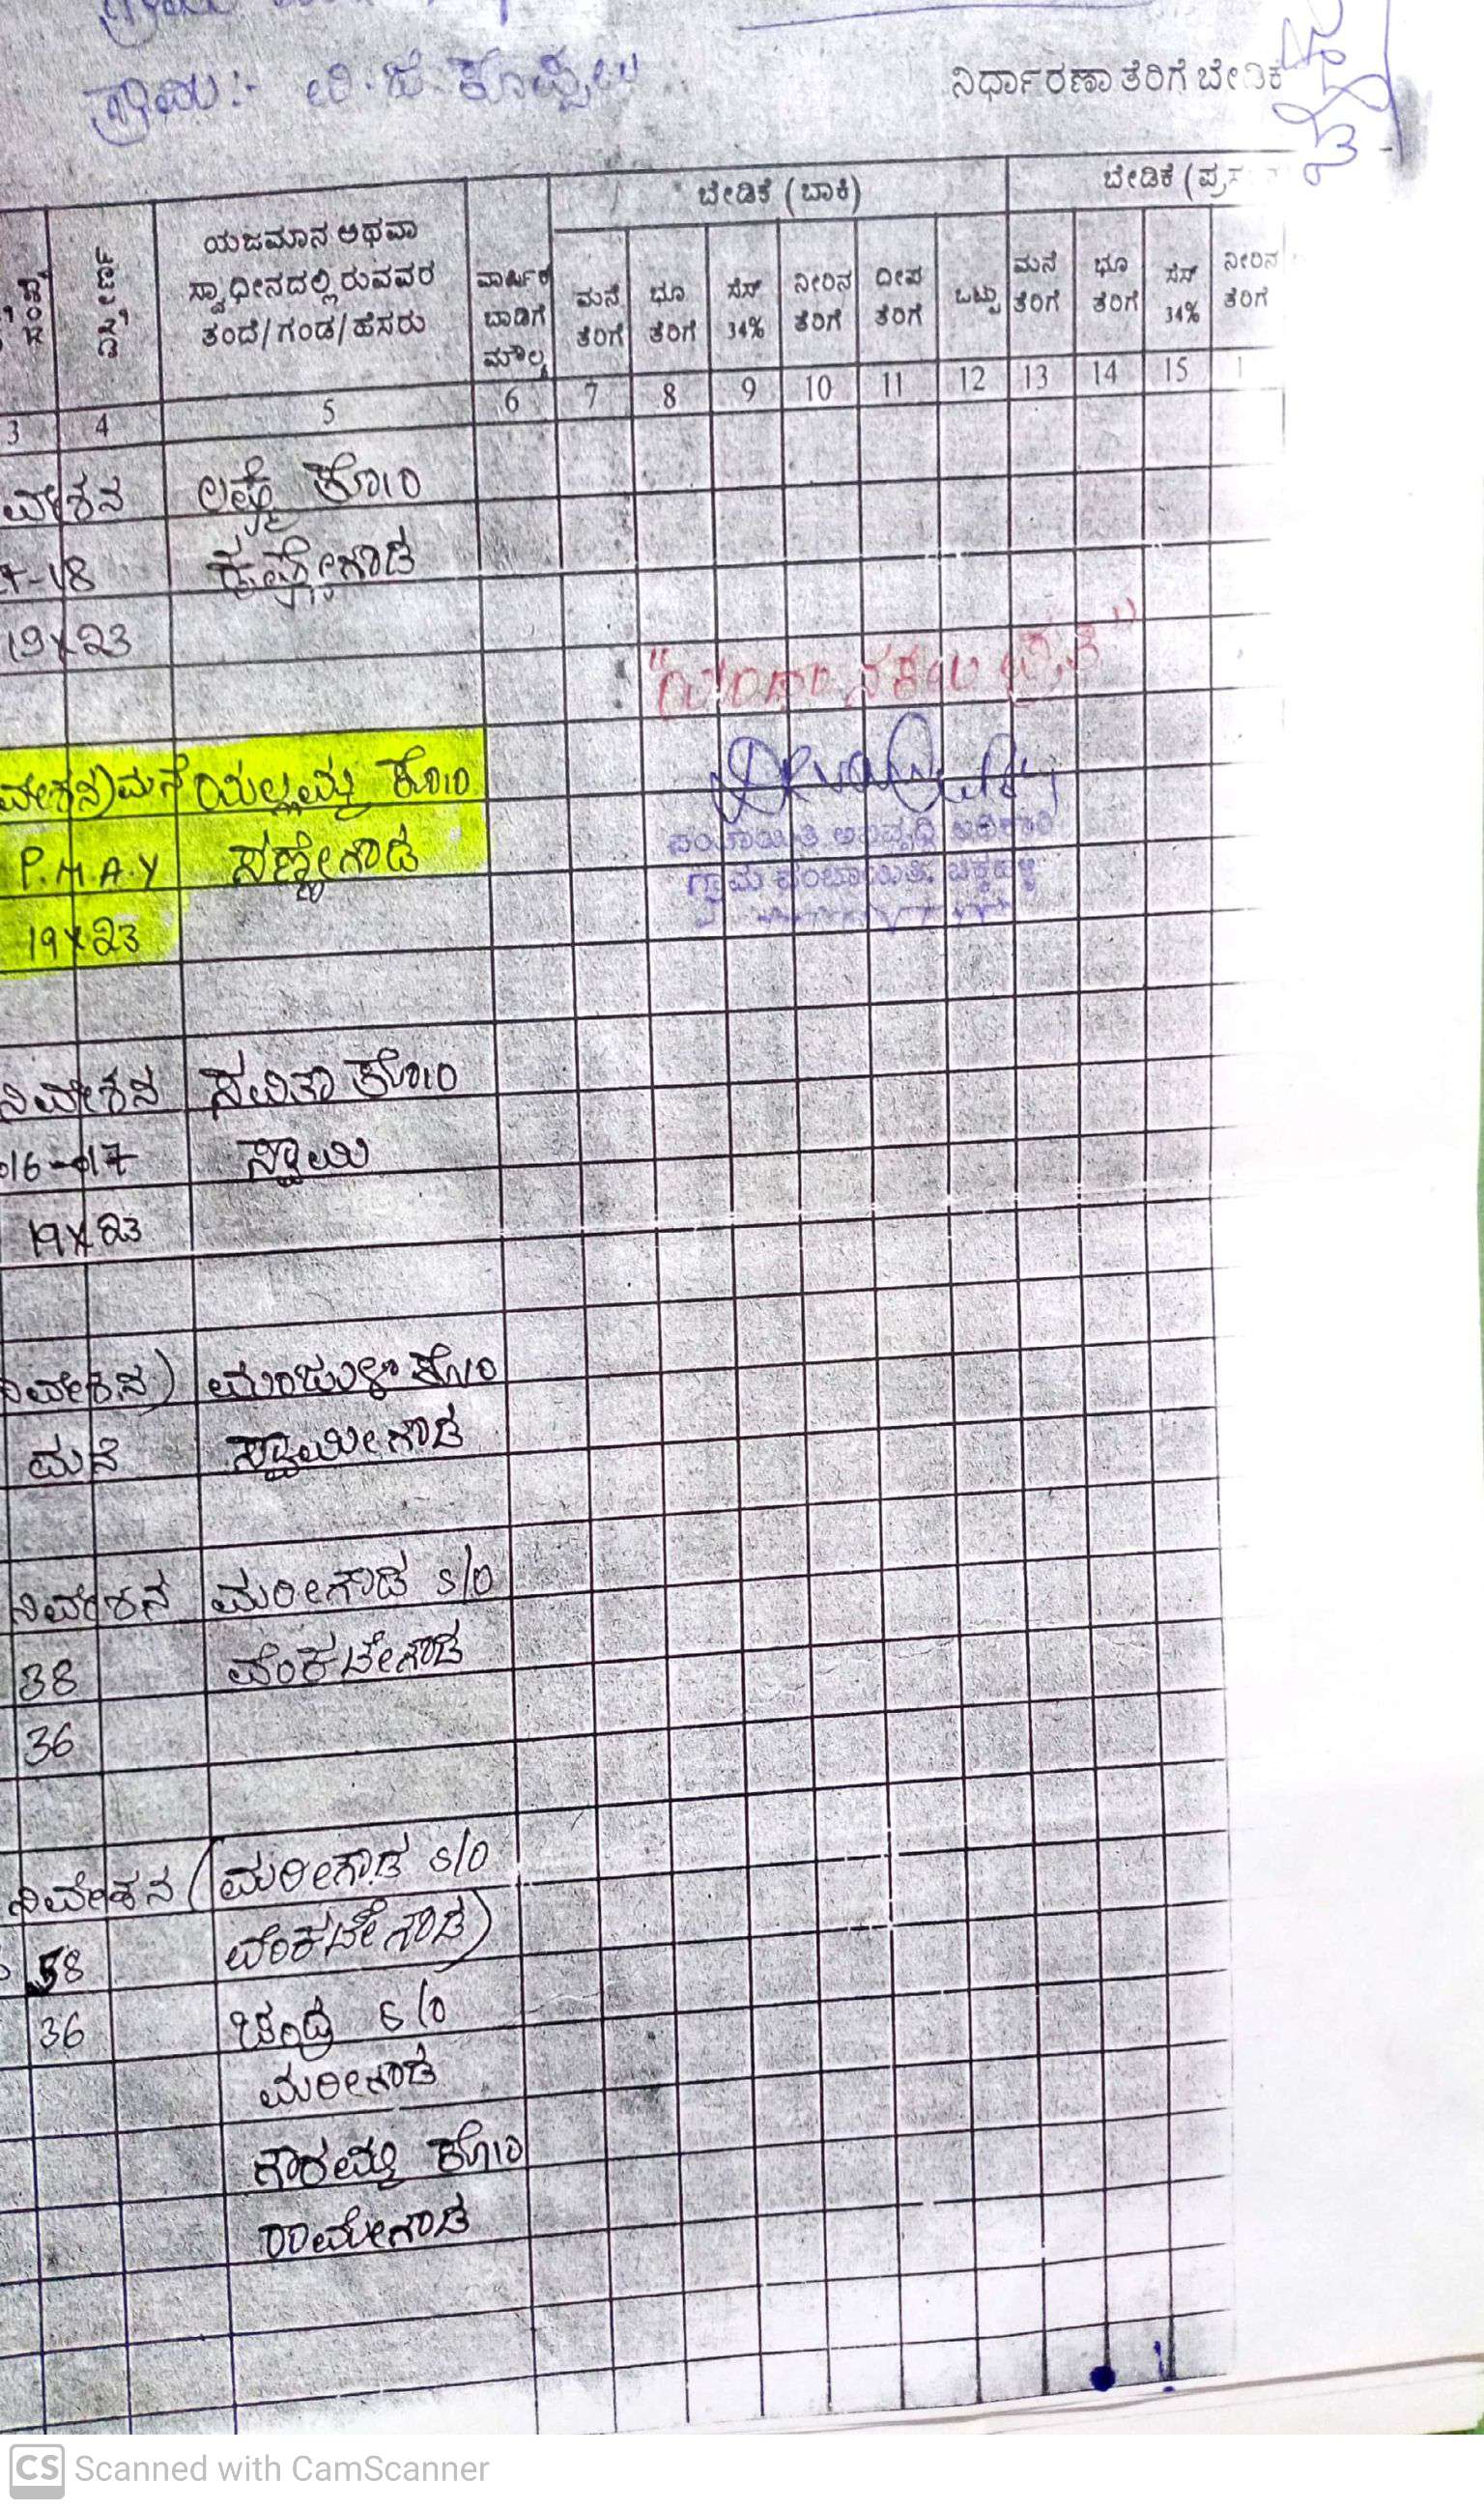 ಗ್ರಾಮ:- ಟಿ.ಜಿ. ಕೊಪ್ಪಲು
ನಿರ್ಧಾರಣಾ ತೆರಿಗೆ ಬೇಡಿಕೆ
ಯಜಮಾನ ಅಥವಾ ಸ್ವಾಧೀನದಲ್ಲಿರುವವರ ತಂದೆ/ಗಂಡ/ಹೆಸರು
ವಾರ್ಷಿಕ ಬಾಡಿಗೆ ಮೌಲ್ಯ
ಬೇಡಿಕೆ (ಬಾಕಿ)
ಬೇಡಿಕೆ (ಪ್ರಸ
ಮನೆ ತೆರಿಗೆ
ಭೂ ತೆರಿಗೆ
ಸೆಸ್ 34%
ನೀರಿನ ತೆರಿಗೆ
ದೀಪ ತೆರಿಗೆ
ಒಟ್ಟು
ಮನೆ ತೆರಿಗೆ
ಭೂ ತೆರಿಗೆ
ಸೆಸ್ 34%
ನೀರಿನ ತೆರಿಗೆ
3 4 5 6 7 8 9 10 11 12 13 14 15 1
ವೇಶನ ಕೋಂ
-18
19x23
"ನಕಲು ಪ್ರತಿ"
ವೇಶನ) ಮನೆ ಯಲ್ಲಮ್ಮ ಕೋಂ
P.M.A.Y ಸಣ್ಣೇಗೌಡ
ಪಂಚಾಯಿತಿ ಅಭಿವೃದ್ಧಿ ಅಧಿಕಾರಿ
ಗ್ರಾಮ ಪಂಚಾಯಿತಿ,
19x23
ನಿವೇಶನ ಸವಿತಾ ಕೋಂ
016-017 ಸ್ವಾಮಿ
19x23
ನಿವೇಶನ) ಮಂಜುಳಾ ಕೋಂ
ಮನೆ ಸ್ವಾಮೀಗೌಡ
ನಿವೇಶನ ಮರೀಗೌಡ s/o
38 ವೆಂಕಟೇಗೌಡ
36
ನಿವೇಶನ (ಮರೀಗೌಡ s/o
38 ವೆಂಕಟೇಗೌಡ)
36 ಚಂದ್ರ s/o
ಮರೀಗೌಡ
ಗೌರಮ್ಮ ಕೋಂ
ರಾಮೇಗೌಡ
CS Scanned with CamScanner